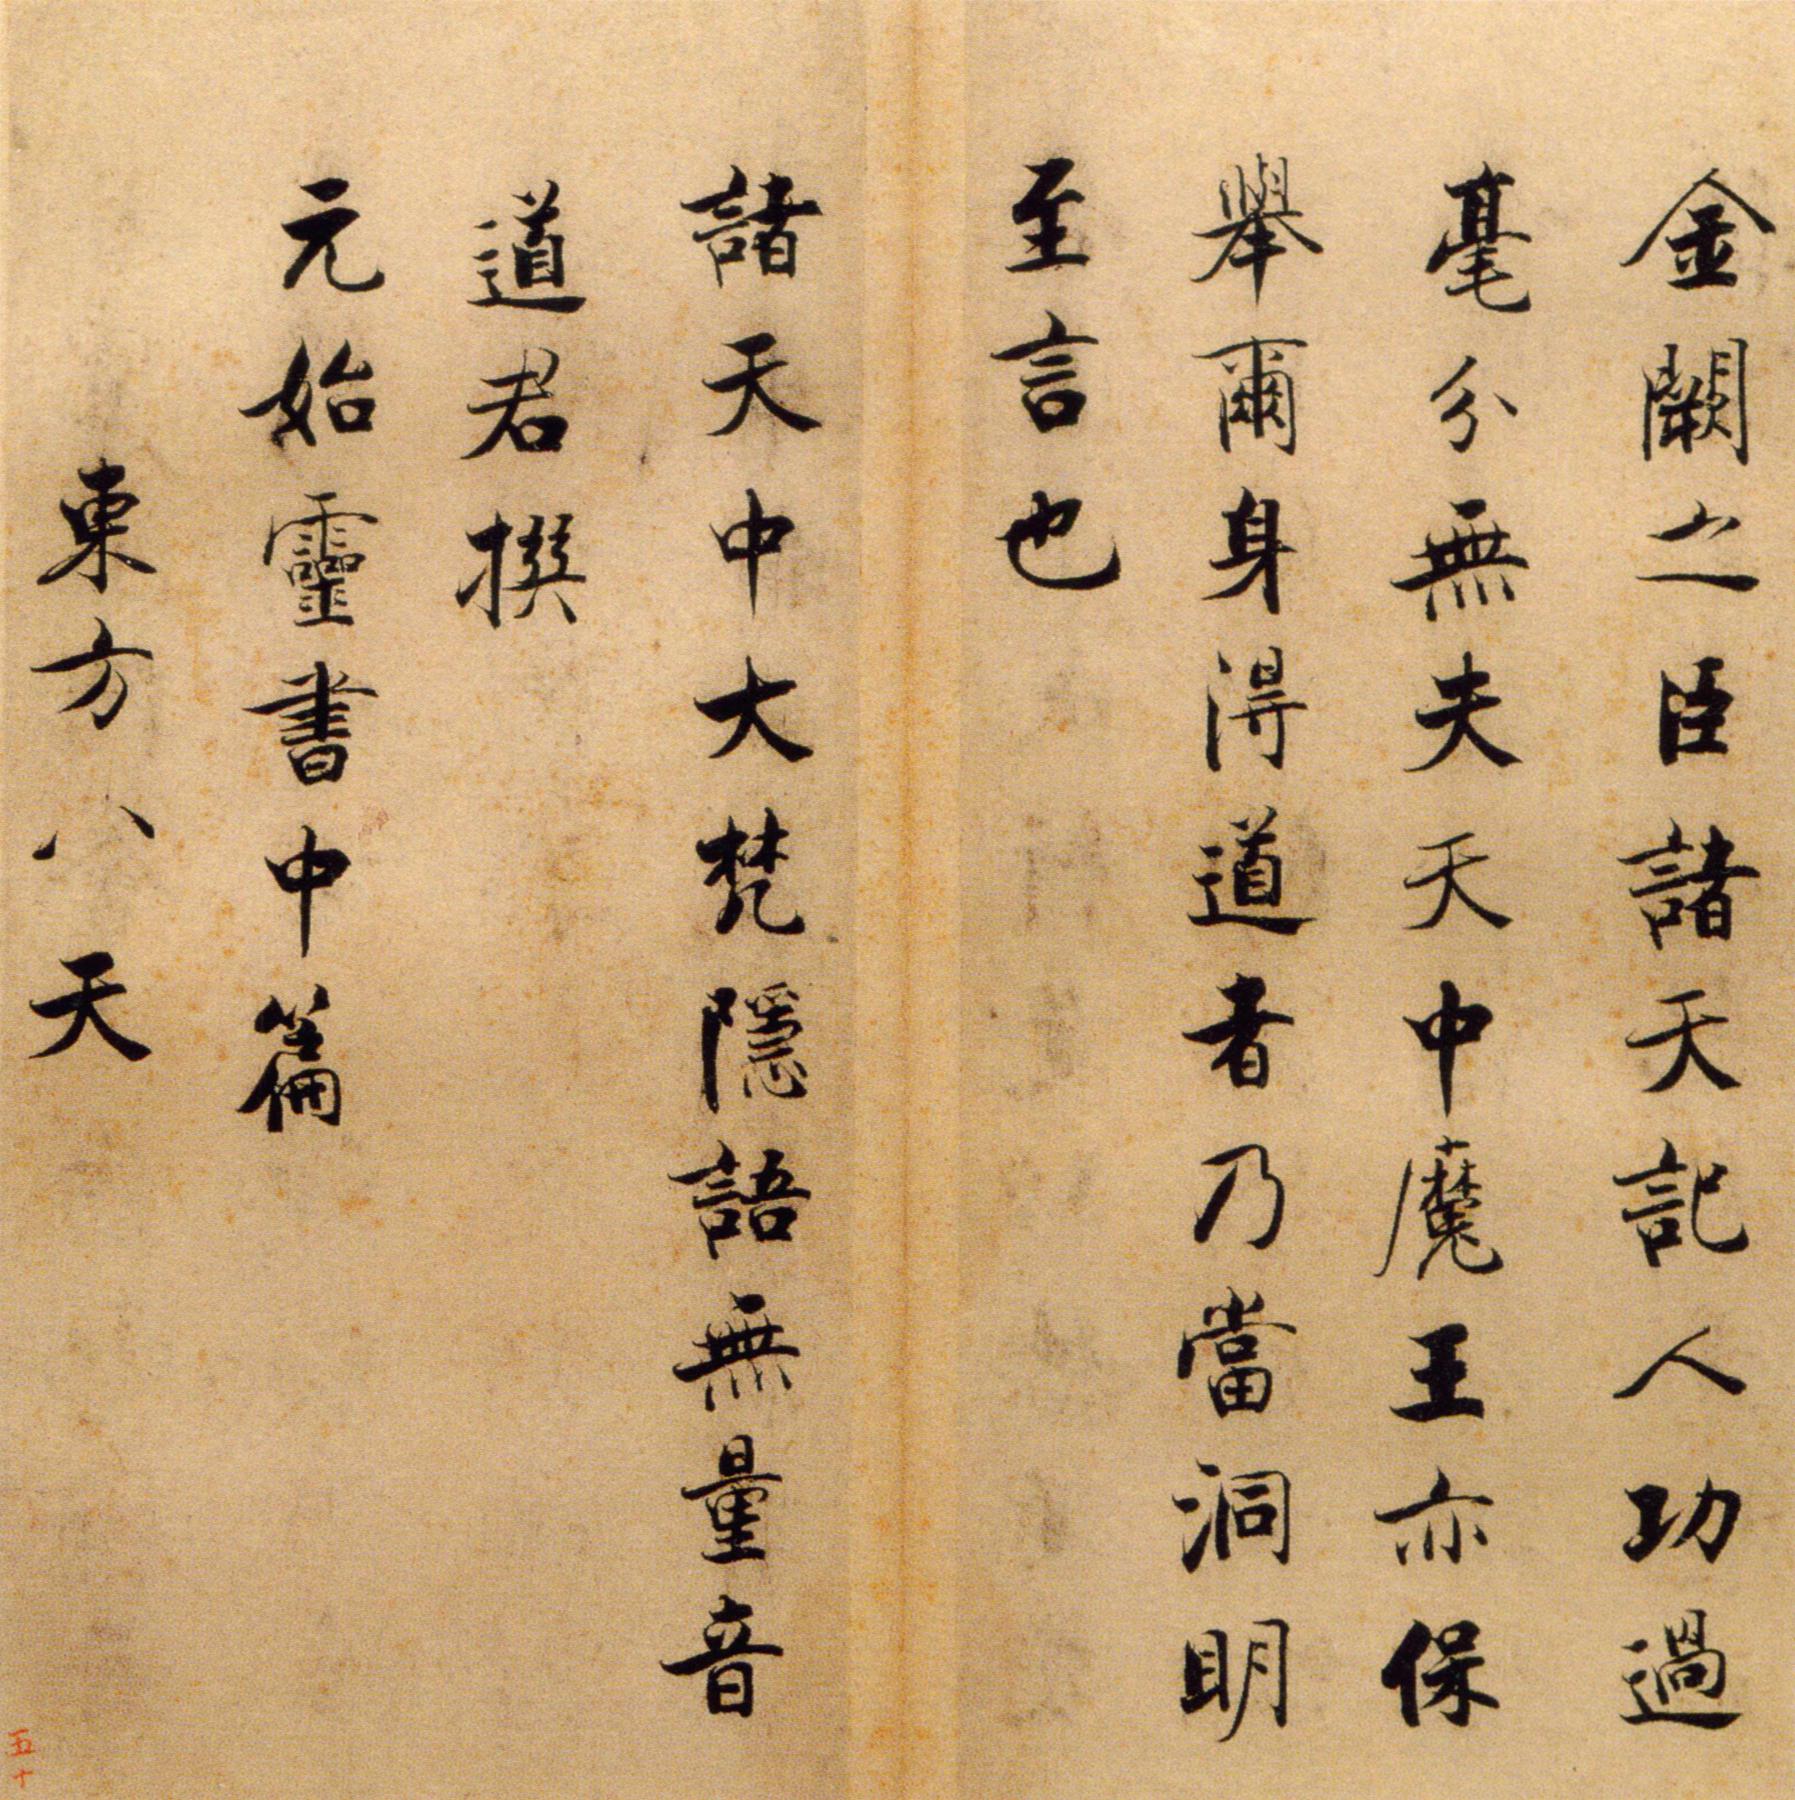 金闕之臣諸天記人功過
毫分無夫天中魔王亦保
舉爾身得道者乃當洞明
至言也
諸天中大梵隱語無量音
道君撰
元始靈書中篇
東方八天
五十